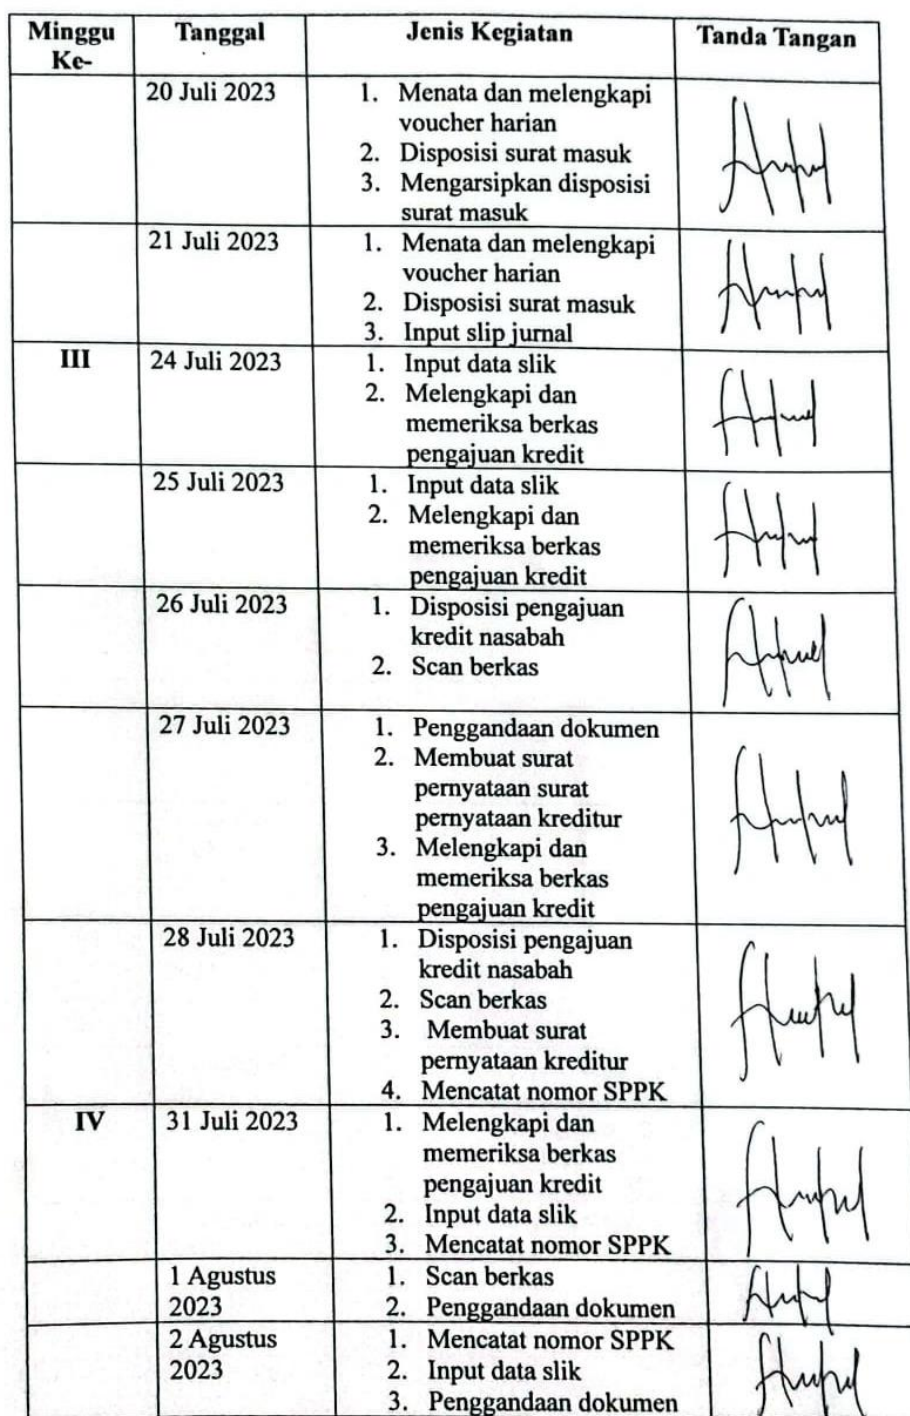 Minggu Ke-
Tanggal
Jenis Kegiatan
Tanda Tangan
20 Juli 2023
1. Menata dan melengkapi
voucher harian
2. Disposisi surat masuk
3. Mengarsipkan disposisi
surat masuk
21 Juli 2023
1. Menata dan melengkapi
voucher harian
2. Disposisi surat masuk
3. Input slip jurnal
III
24 Juli 2023
1. Input data slik
2. Melengkapi dan
memeriksa berkas
pengajuan kredit
25 Juli 2023
1. Input data slik
2. Melengkapi dan
memeriksa berkas
pengajuan kredit
26 Juli 2023
1. Disposisi pengajuan
kredit nasabah
2. Scan berkas
27 Juli 2023
1. Penggandaan dokumen
2. Membuat surat
pernyataan surat
pernyataan kreditur
3. Melengkapi dan
memeriksa berkas
pengajuan kredit
28 Juli 2023
1. Disposisi pengajuan
kredit nasabah
2. Scan berkas
3. Membuat surat
pernyataan kreditur
4. Mencatat nomor SPPK
IV
31 Juli 2023
1. Melengkapi dan
memeriksa berkas
pengajuan kredit
2. Input data slik
3. Mencatat nomor SPPK
1 Agustus
2023
1. Scan berkas
2. Penggandaan dokumen
2 Agustus
2023
1. Mencatat nomor SPPK
2. Input data slik
3. Penggandaan dokumen